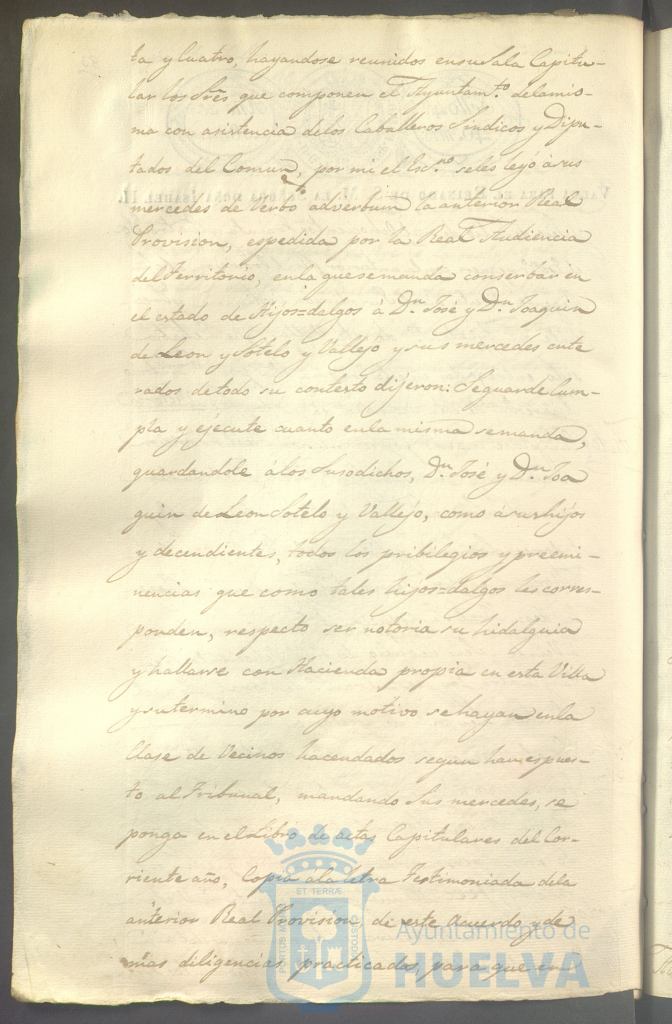 ta y cuatro, hayandose reunidos en su Sala Capitu-
lar los Sres que componen el Ayuntam.to de la mis-
ma con asistencia de los Caballeros Sindicos y Dipu-
tados del Comun, por mi el Es.no se les leyó á sus
mercedes de Verbo adverbum la anterior Real
Provision, espedida por la Real Audiencia
del Territorio, en la que se manda conserbar en
el estado de Hijos=dalgos á D.n José y D.n Joaquin
de Leon y Sotelo y Vallejo y sus mercedes ente
rados de todo su contesto dijeron: Se guarde cum-
pla y ejecute cuanto en la misma se manda,
guardandole á los Susodichos, D.n José y D.n Joa
quin de Leon Sotelo y Vallejo, como á sus hijos
y decendientes, todos los pribilegios y preemi-
nencias que como tales hijos=dalgos les corres-
ponden, respecto ser notoria su hidalguia
y hallarse con Hacienda propia en esta Villa
y su termino por cuyo motivo se hayan en la
Clase de Vecinos hacendados segun han espues-
to al Tribunal, mandando Sus mercedes, se
ponga en el Libro de actas Capitulares del Cor-
riente año, Copia a la letra Testimoniada de la
anterior Real Provision de este Acuerdo y de
mas diligencias practicadas, para que en
Ayuntamiento de
HUELVA